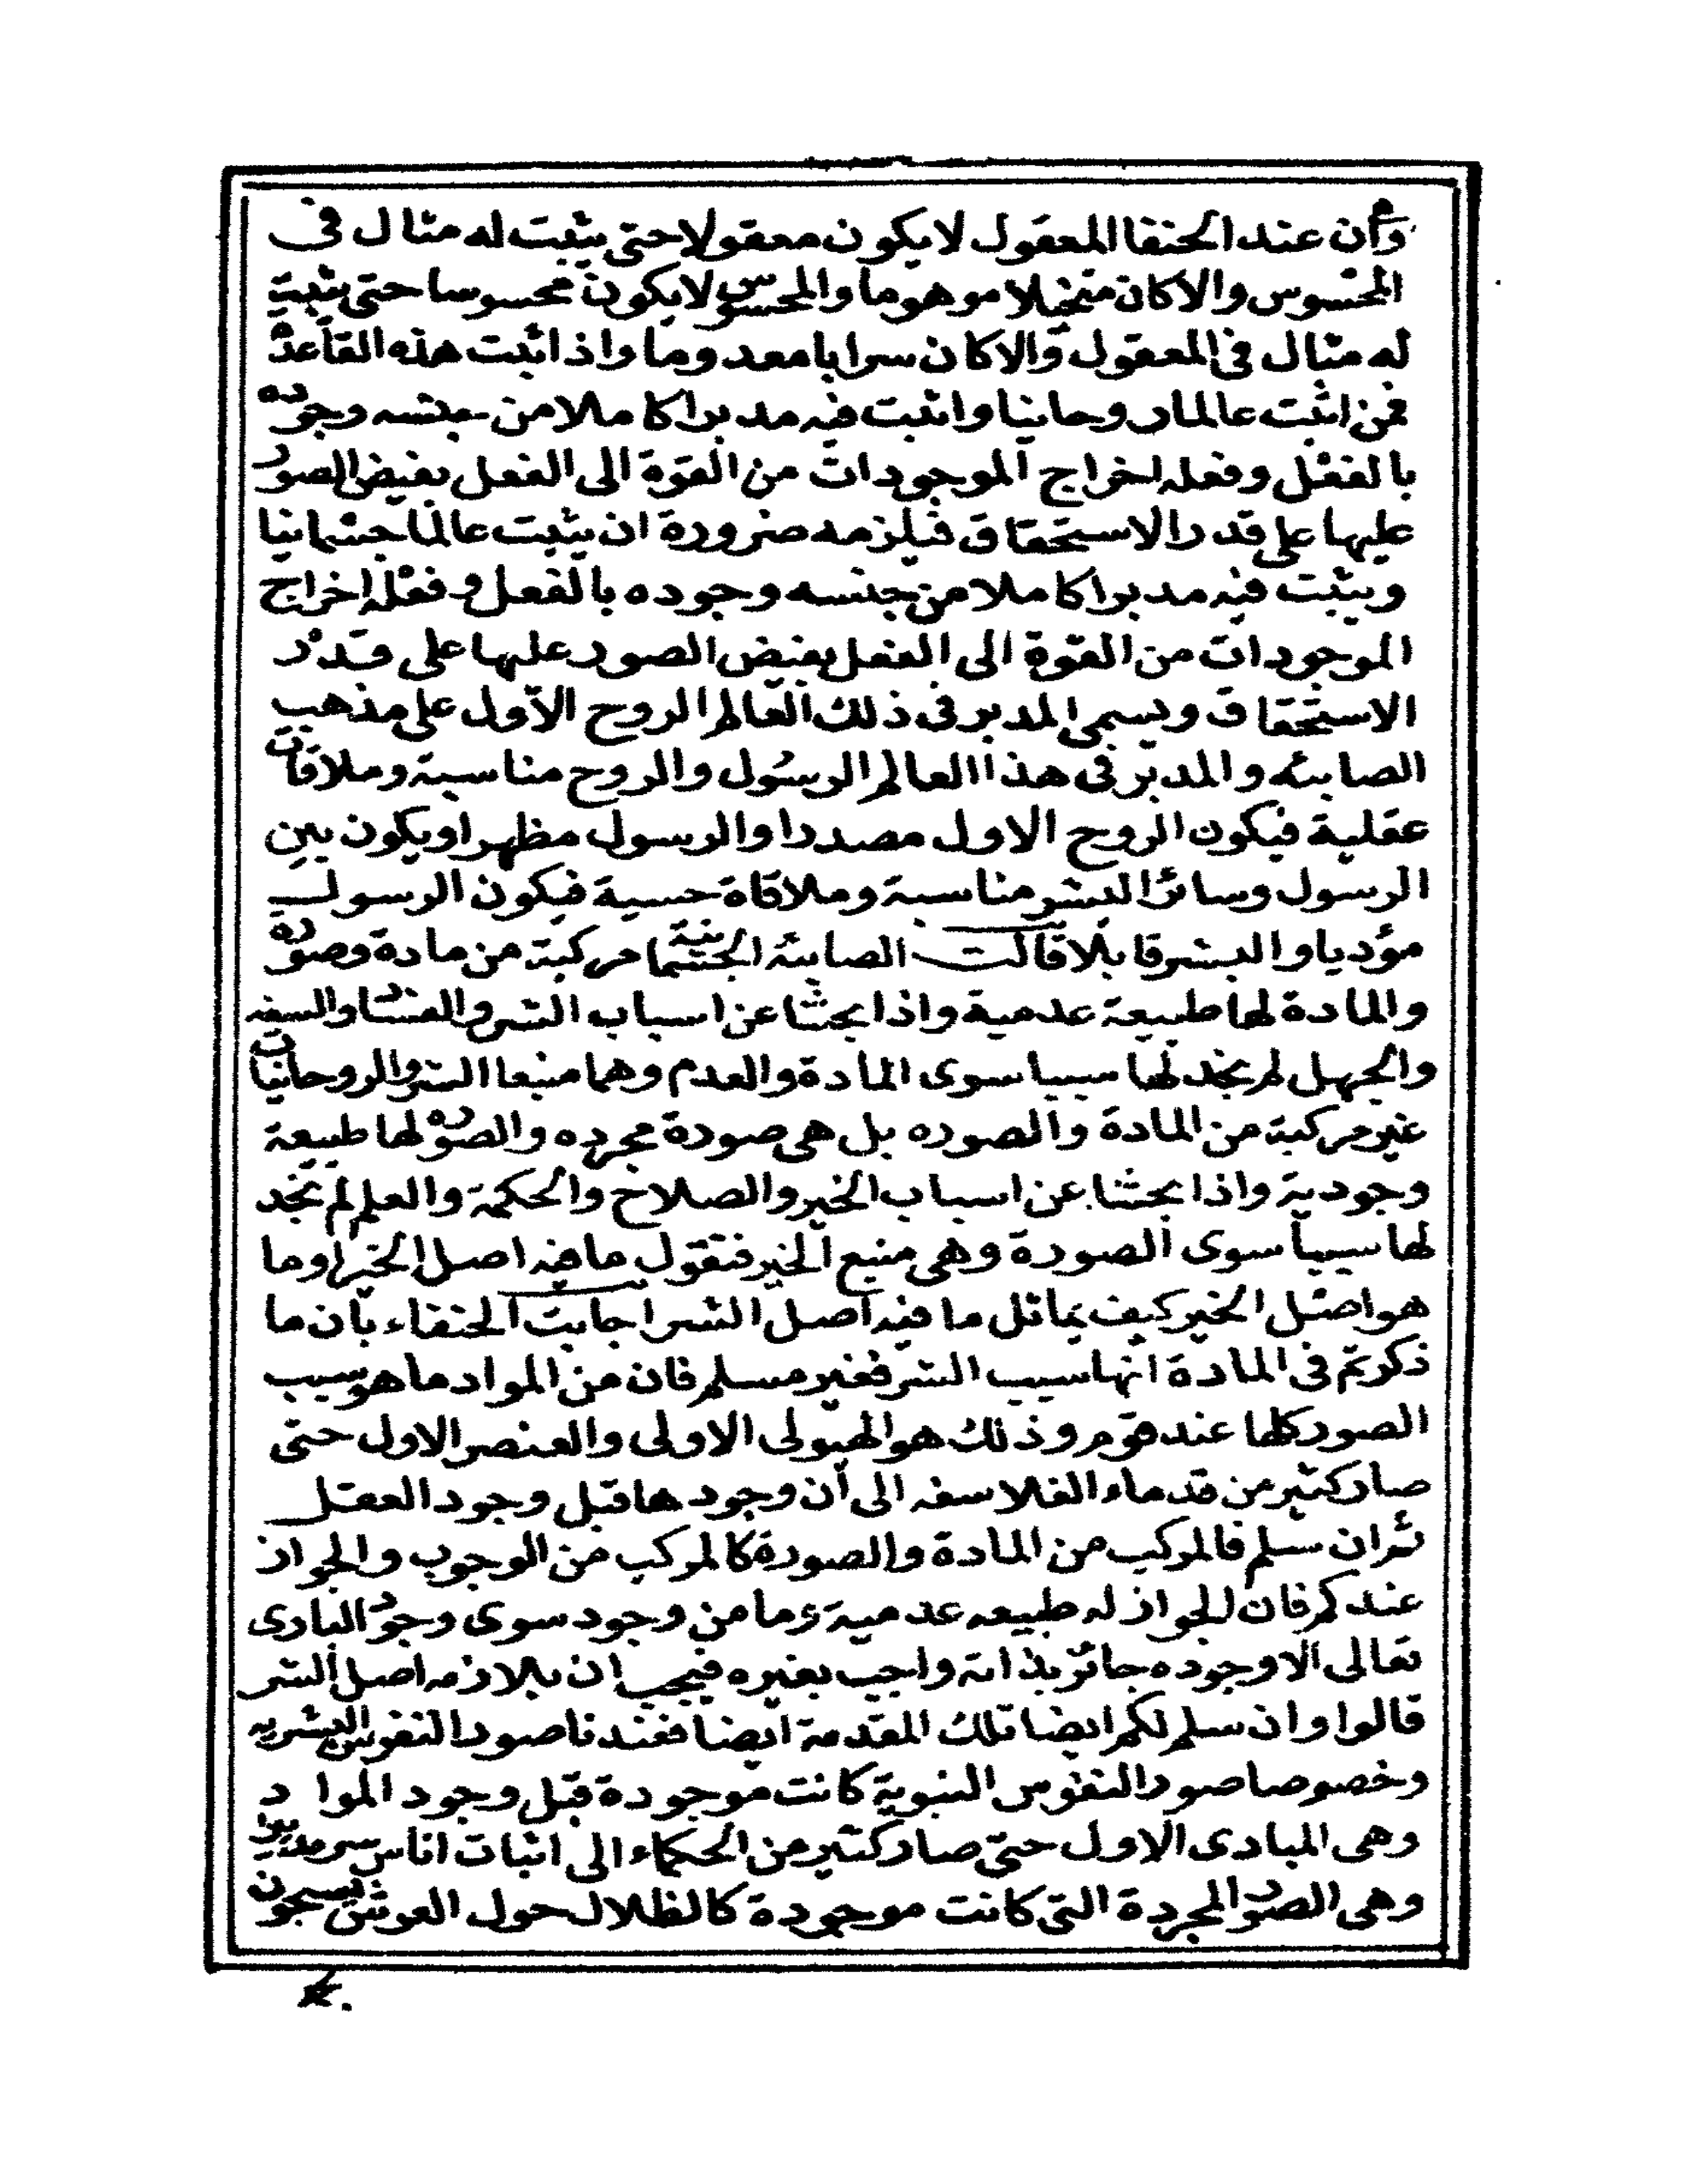 وان عند الحنفا المعقول لا يكون معقولا حتى يثبت له مثال في
المحسوس والا كان متخيلا موهوما والمحسوس لا يكون محسوسا حتى يثبت
له مثال في المعقول والا كان سرابا معدوما واذا ثبت هذه القاعدة
فمن اثبت عالما روحانيا واثبت فيه مدبرا كاملا من جنسه وجوده
بالفعل وفعله اخراج الموجودات من القوة الى الفعل بفيض الصور
عليها على قدر الاستحقاق فيلزمه ضرورة ان يثبت عالما جسمانيا
ويثبت فيه مدبرا كاملا من جنسه وجوده بالفعل وفعله اخراج
الموجودات من القوة الى الفعل بفيض الصور عليها على قدر
الاستحقاق ويسمى المدبر في ذلك العالم الروح الاول على مذهب
الصابئه والمدبر في هذا العالم الرسول والروح مناسبة وملاقات
عقلية فيكون الروح الاول مصدرا والرسول مظهرا ويكون بين
الرسول وسائر البشر مناسبة وملاقاة حسية فيكون الرسول
مؤديا والبشر قابلا قالت الصابئه الجسمانية مركبة من مادة وصورة
والمادة لها طبيعة عدمية واذا بحثنا عن اسباب الشر والفساد والسفه
والجهل لم نجد لها سببا سوى المادة والعدم وهما منبعا الشر والروحانيات
غير مركبة من المادة والصوره بل هي صورة مجرده والصورة لها طبيعة
وجودية واذا بحثنا عن اسباب الخير والصلاح والحكمة والعلم لم نجد
لها سببا سوى الصورة وهي منبع الخير فنقول ما فيه اصل الخير او ما
هو اصل الخير كيف يماثل ما فيه اصل الشر اجابت الحنفاء بأن ما
ذكرتم في المادة انها سبب الشر فغير مسلم فان من المواد ما هو سبب
الصور كلها عند قوم وذلك هو الهيولى الاولى والعنصر الاول حتى
صار كثير من قدماء الفلاسفه الى أن وجودها قبل وجود العقل
ثم ان سلم فالمركب من المادة والصورة كالمركب من الوجوب والجواز
عندكم فان الجواز له طبيعه عدمية وما من وجود سوى وجود البارى
تعالى الا وجوده جائز بذاته واجب بغيره فيجب ان يلازمه اصل الشر
قالوا وان سلم لكم ايضا تلك المقدمة ايضا فعندنا صور النفوس البشريه
وخصوصا صور النفوس النبوية كانت موجودة قبل وجود المواد
وهي المبادى الاول حتى صار كثير من الحكماء الى اثبات اناس سرمديين
وهي الصور المجردة التي كانت موجودة كالظلال حول العرش يسبحون